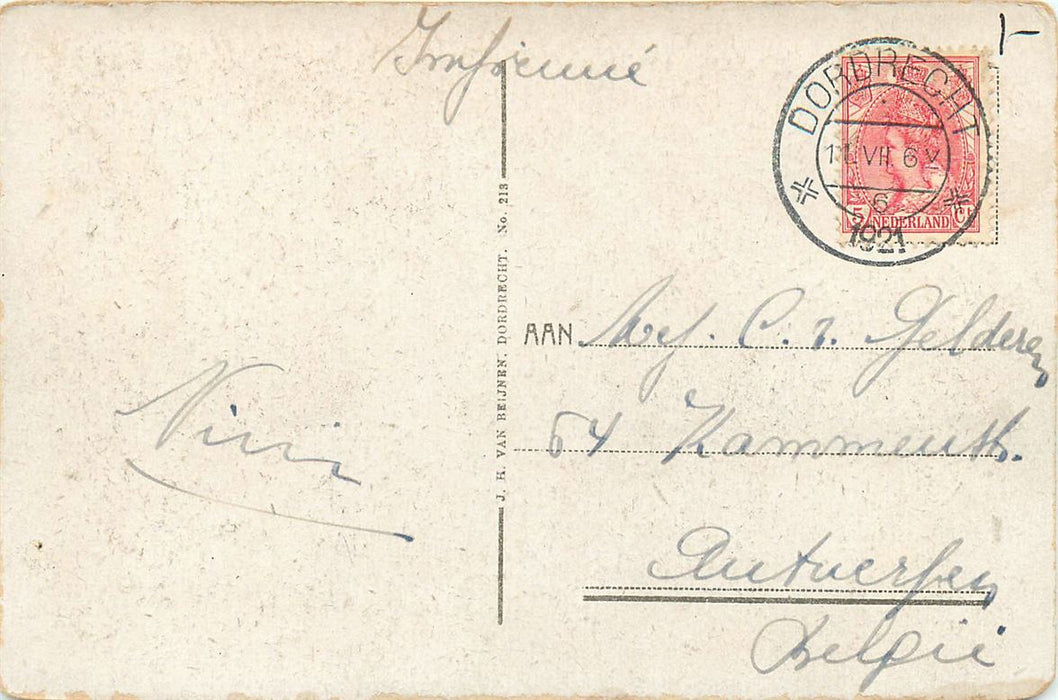 Imprimé
DORDRECHT
11 VII 6 V
6
1921
5 NEDERLAND Ct
J. H. VAN BEIJNEN. DORDRECHT. No. 213
AAN Mej. C. v. Gelderen
54 Kammenstr.
Antwerpen
België